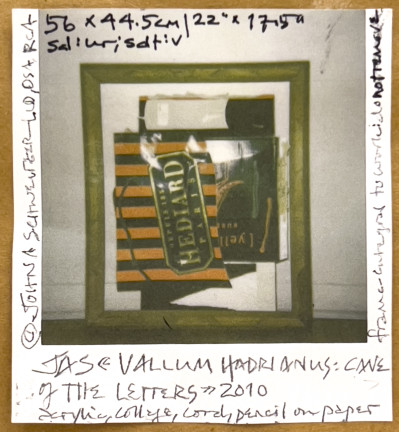 56 x 44.5cm/22" x 17.5"
sd:ur;sdti:v
© JOHN A SCHWEITZER
HEDIARD
PARIS
[yell
frame integral to work do not remove
JAS « VALLUM HADRIANUS: CAVE
of THE LETTERS » 2010
acrylic, collage, cord, pencil on paper